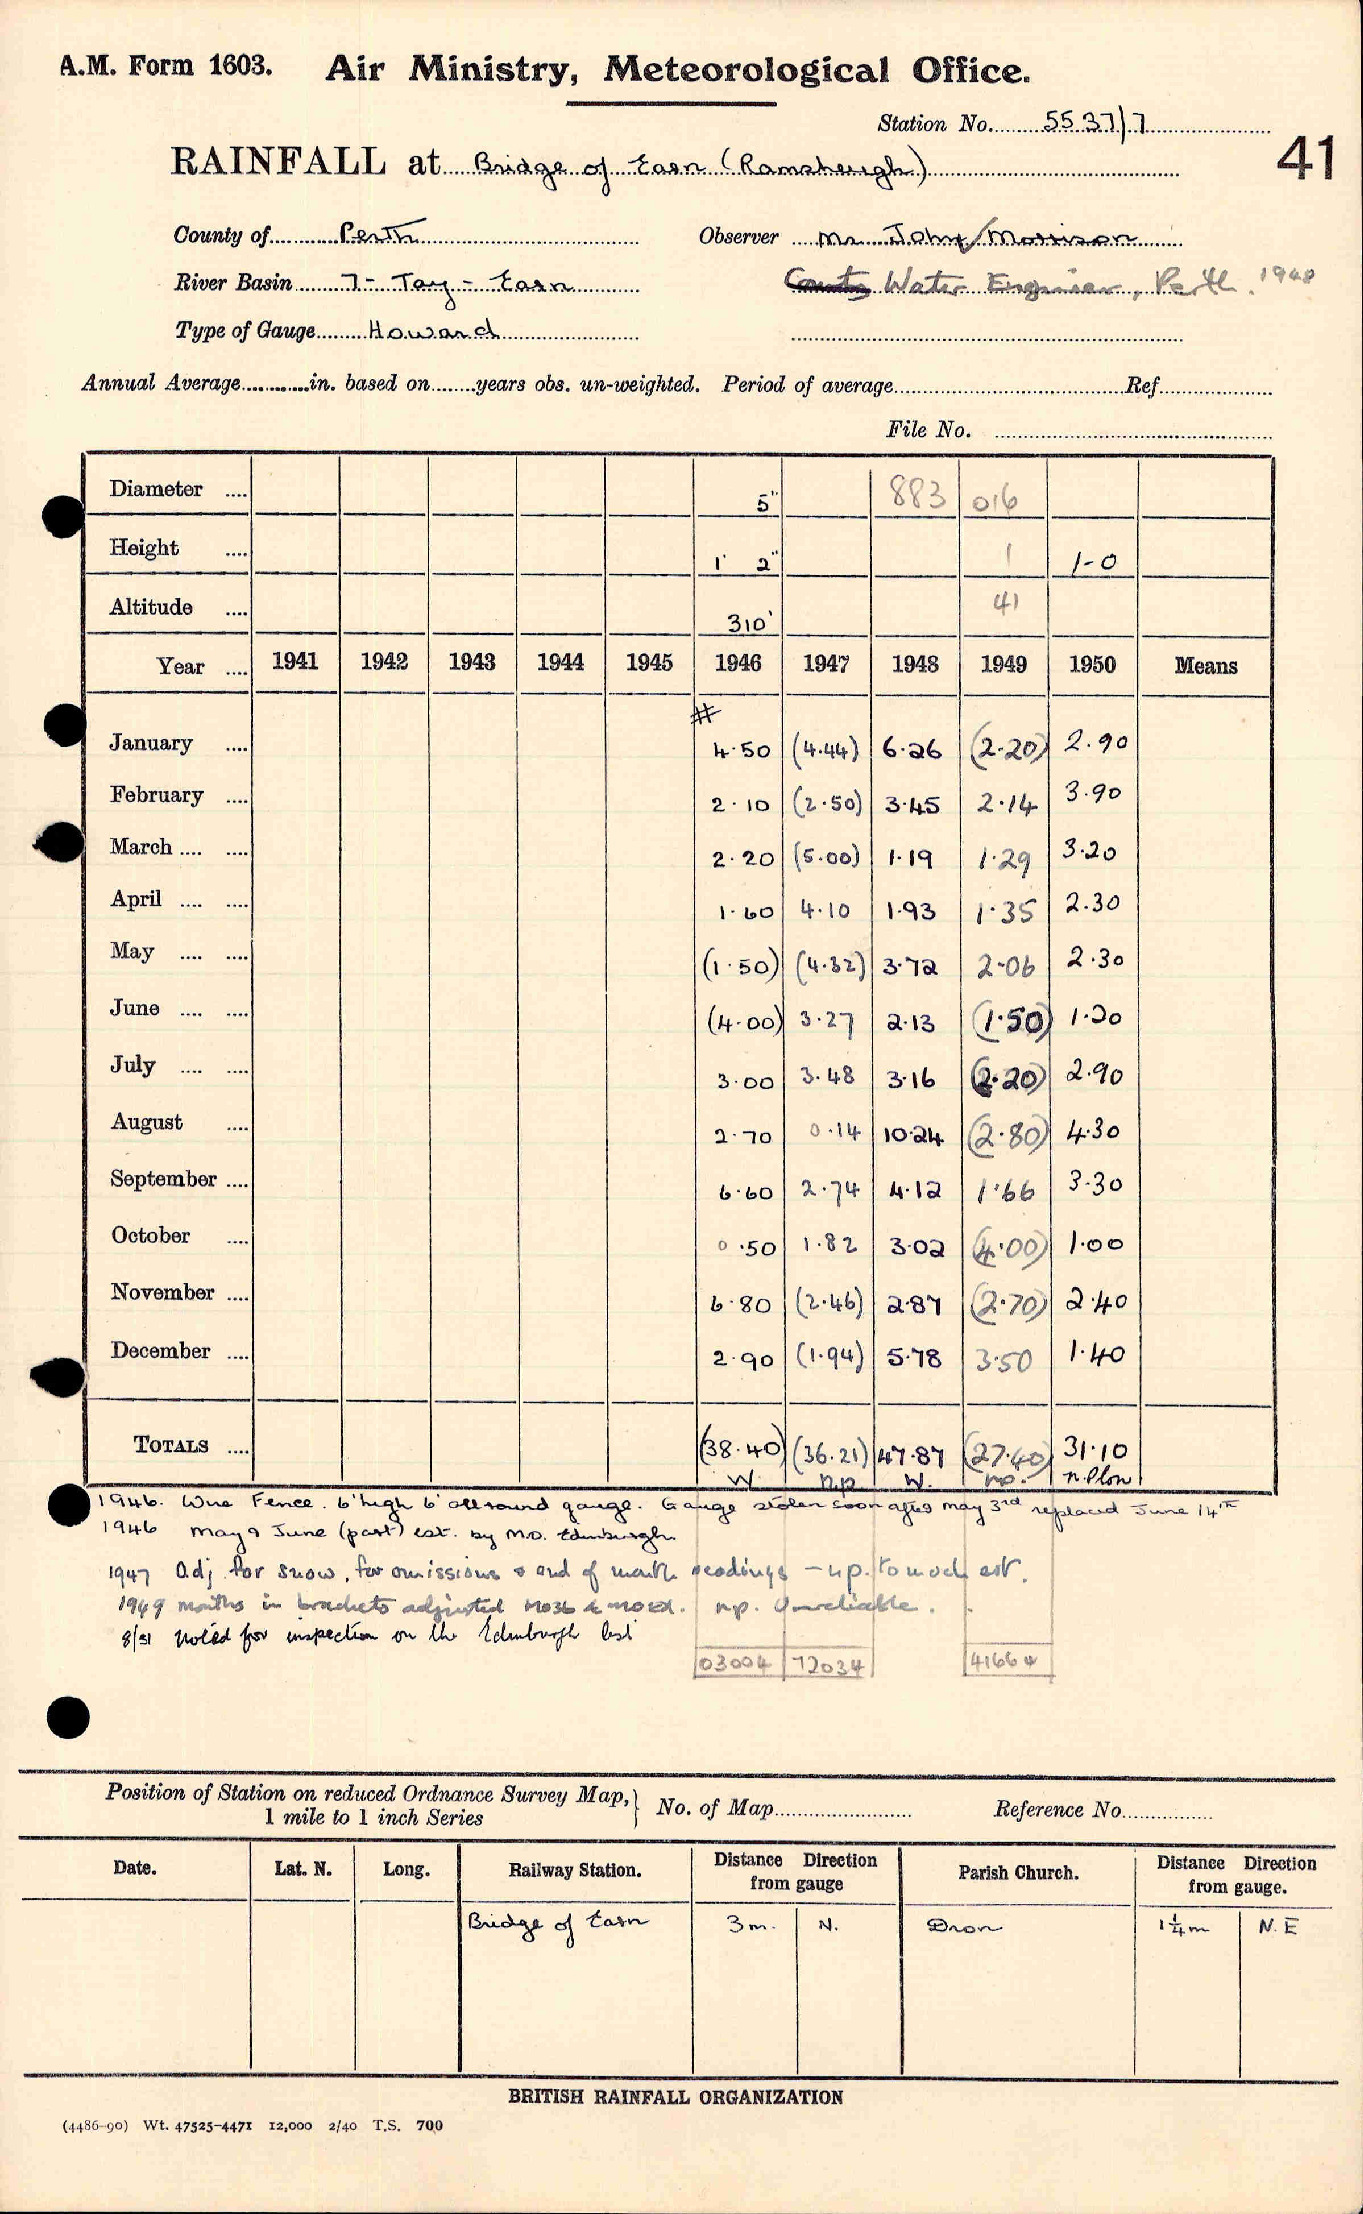 A.M. Form 1603. Air Ministry, Meteorological Office.
Station No. 5537/7
41
RAINFALL at Bridge of Earn (Ramsheugh)
County of Perth Observer Mr John Morrison
River Basin 7 - Tay - Earn County Water Engineer, Perth. 1948
Type of Gauge Howard
Annual Average in. based on years obs. un-weighted. Period of average Ref.
File No.
Diameter .... 5" 883 016
Height .... 1' 2" 1 1-0
Altitude .... 310' 41
Year .... 1941 1942 1943 1944 1945 1946 1947 1948 1949 1950 Means
#
January .... 4.50 (4.44) 6.26 (2.20) 2.90
February .... 2.10 (2.50) 3.45 2.14 3.90
March .... .... 2.20 (5.00) 1.19 1.29 3.20
April .... .... 1.60 4.10 1.93 1.35 2.30
May .... .... (1.50) (4.32) 3.72 2.06 2.30
June .... .... (4.00) 3.27 2.13 (1.50) 1.20
July .... .... 3.00 3.48 3.16 (2.20) 2.90
August .... 2.70 0.14 10.24 (2.80) 4.30
September .... 6.60 2.74 4.12 1.66 3.30
October .... 0.50 1.82 3.02 (4.00) 1.00
November .... 6.80 (2.46) 2.87 (2.70) 2.40
December .... 2.90 (1.94) 5.78 3.50 1.40
TOTALS .... (38.40) (36.21) 47.87 (27.40) 31.10
W. n.p W. n.p.
1946. Wire Fence. 6' high 6' all round gauge. Gauge stolen soon after May 3rd replaced June 14th
1946 May & June (part) est. by M.O. Edinburgh
1947 Adj. for snow, for omissions & end of month readings - n.p. too much est.
1949 months in brackets adjusted n.p. Unreliable.
8/51 Noted for inspection on the Edinburgh list
03004 72034 41664
Position of Station on reduced Ordnance Survey Map, } No. of Map Reference No.
1 mile to 1 inch Series
Date. Lat. N. Long. Railway Station. Distance Direction from gauge Parish Church. Distance Direction from gauge.
Bridge of Earn 3 m. N. Dron 1¼ m N.E
BRITISH RAINFALL ORGANIZATION
(4486-90) Wt. 47525-4471 12,000 2/40 T.S. 700